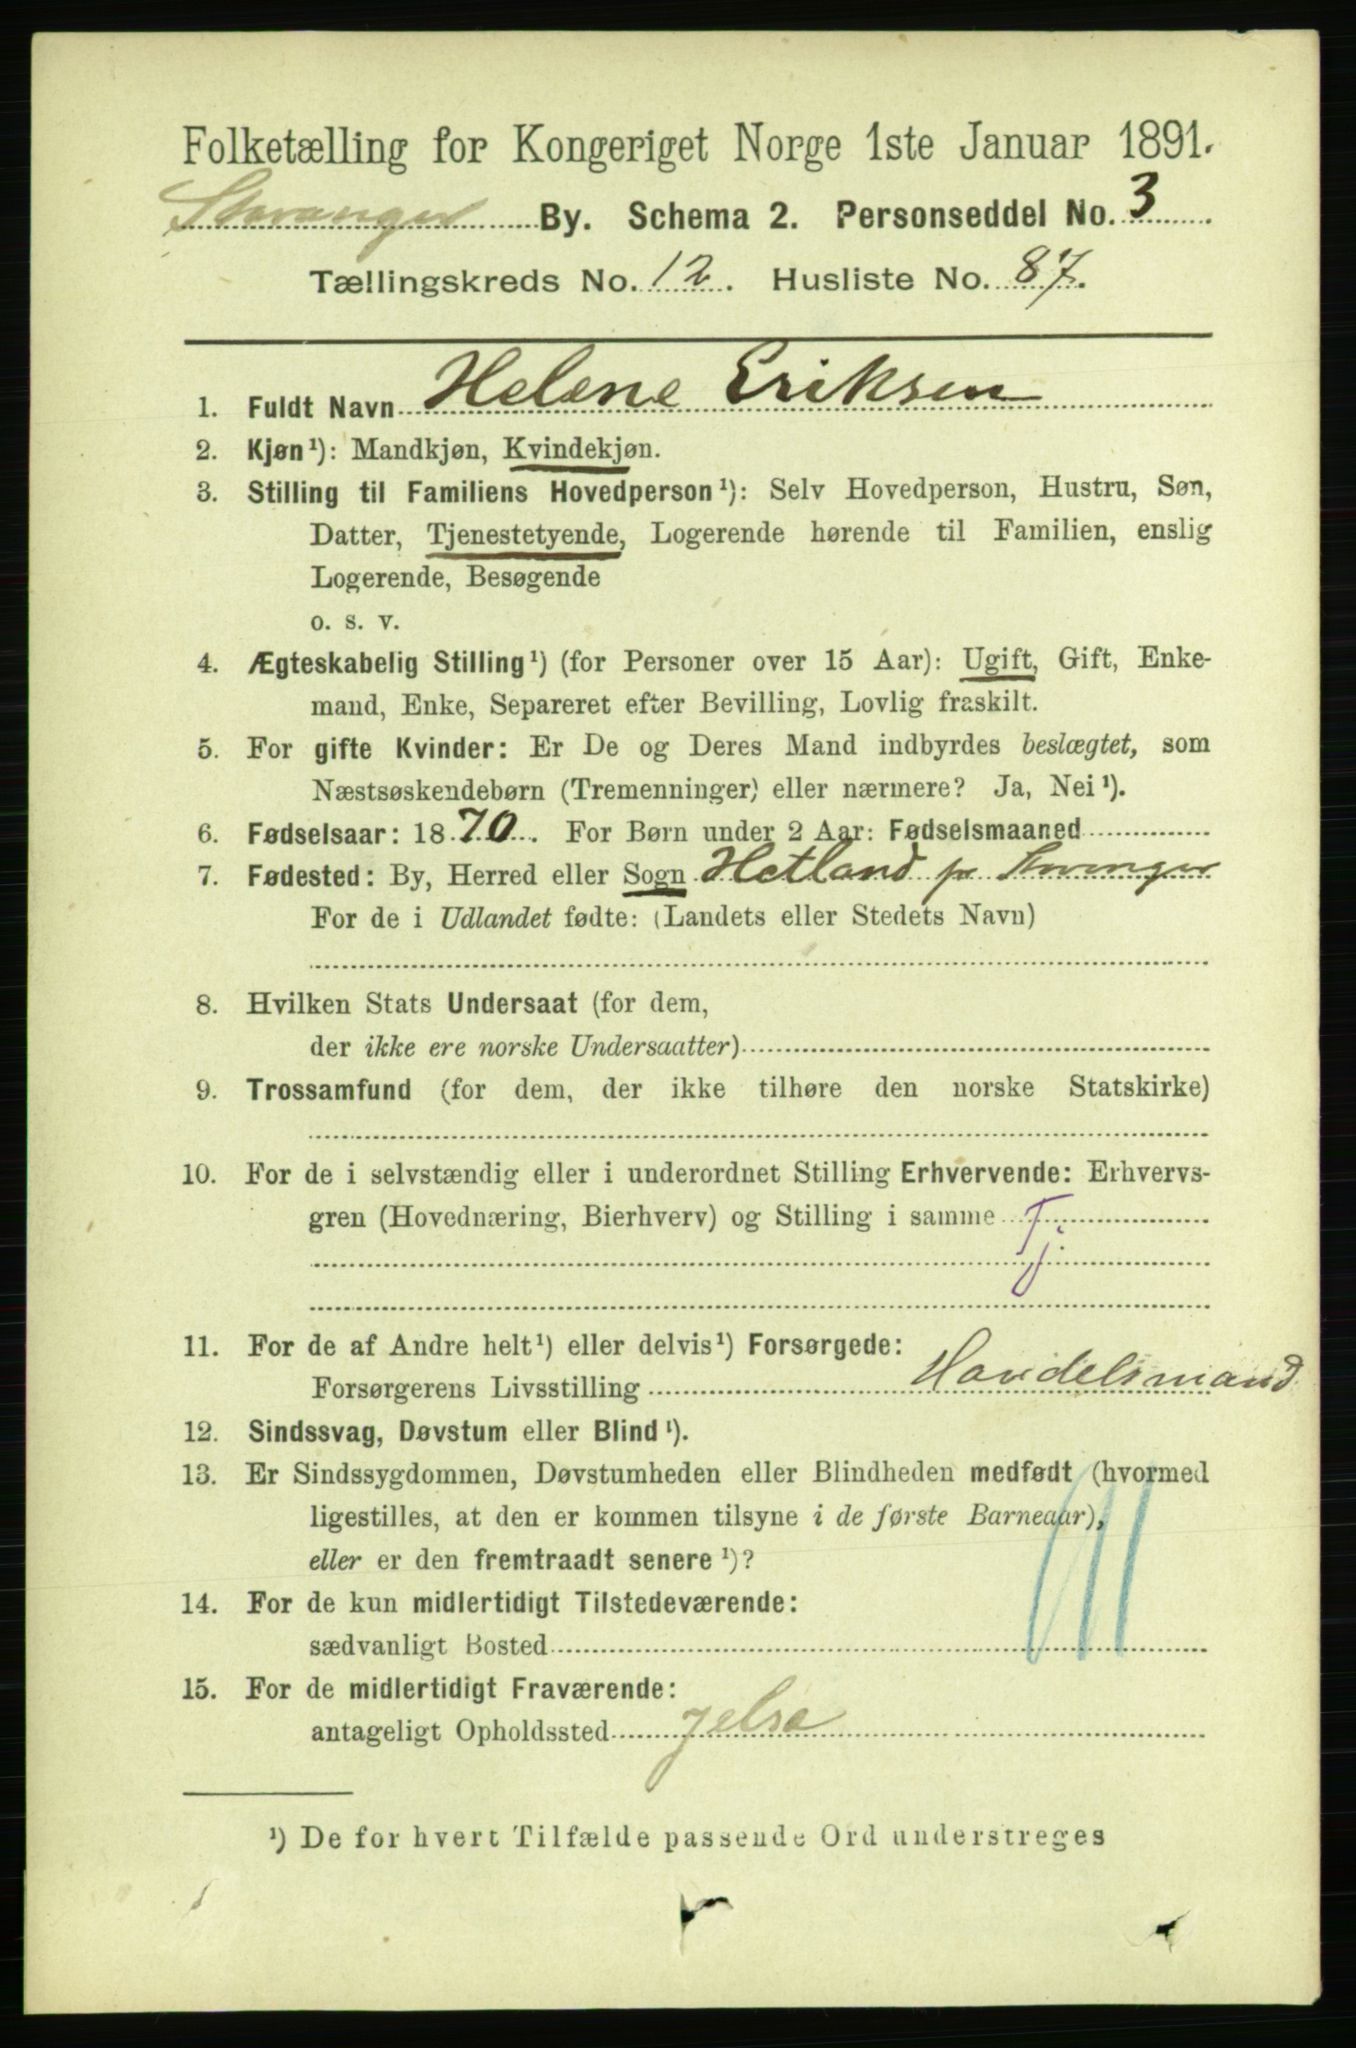 Folketælling for Kongeriget Norge 1ste Januar 1891.
Stavanger By. Schema 2. Personseddel No. 3
Tællingskreds No. 12. Husliste No. 87.
1. Fuldt Navn Helene Eriksen
2. Kjøn¹): Mandkjøn, Kvindekjøn.
3. Stilling til Familiens Hovedperson¹): Selv Hovedperson, Hustru, Søn,
Datter, Tjenestetyende, Logerende hørende til Familien, enslig
Logerende, Besøgende
o. s. v.
4. Ægteskabelig Stilling¹) (for Personer over 15 Aar): Ugift, Gift, Enke-
mand, Enke, Separeret efter Bevilling, Lovlig fraskilt.
5. For gifte Kvinder: Er De og Deres Mand indbyrdes beslægtet, som
Næstsøskendebørn (Tremenninger) eller nærmere? Ja, Nei¹).
6. Fødselsaar: 1870. For Børn under 2 Aar: Fødselsmaaned
7. Fødested: By, Herred eller Sogn Hetland pr Stavanger
For de i Udlandet fødte: (Landets eller Stedets Navn)
8. Hvilken Stats Undersaat (for dem,
der ikke ere norske Undersaatter)
9. Trossamfund (for dem, der ikke tilhøre den norske Statskirke)
10. For de i selvstændig eller i underordnet Stilling Erhvervende: Erhvervs-
gren (Hovednæring, Bierhverv) og Stilling i samme Tj
11. For de af Andre helt¹) eller delvis¹) Forsørgede:
Forsørgerens Livsstilling Handelsmand
12. Sindssvag, Døvstum eller Blind¹).
13. Er Sindssygdommen, Døvstumheden eller Blindheden medfødt (hvormed
ligestilles, at den er kommen tilsyne i de første Barneaar),
eller er den fremtraadt senere¹)?
14. For de kun midlertidigt Tilstedeværende:
sædvanligt Bosted
15. For de midlertidigt Fraværende:
antageligt Opholdssted Jelse
¹) De for hvert Tilfælde passende Ord understreges